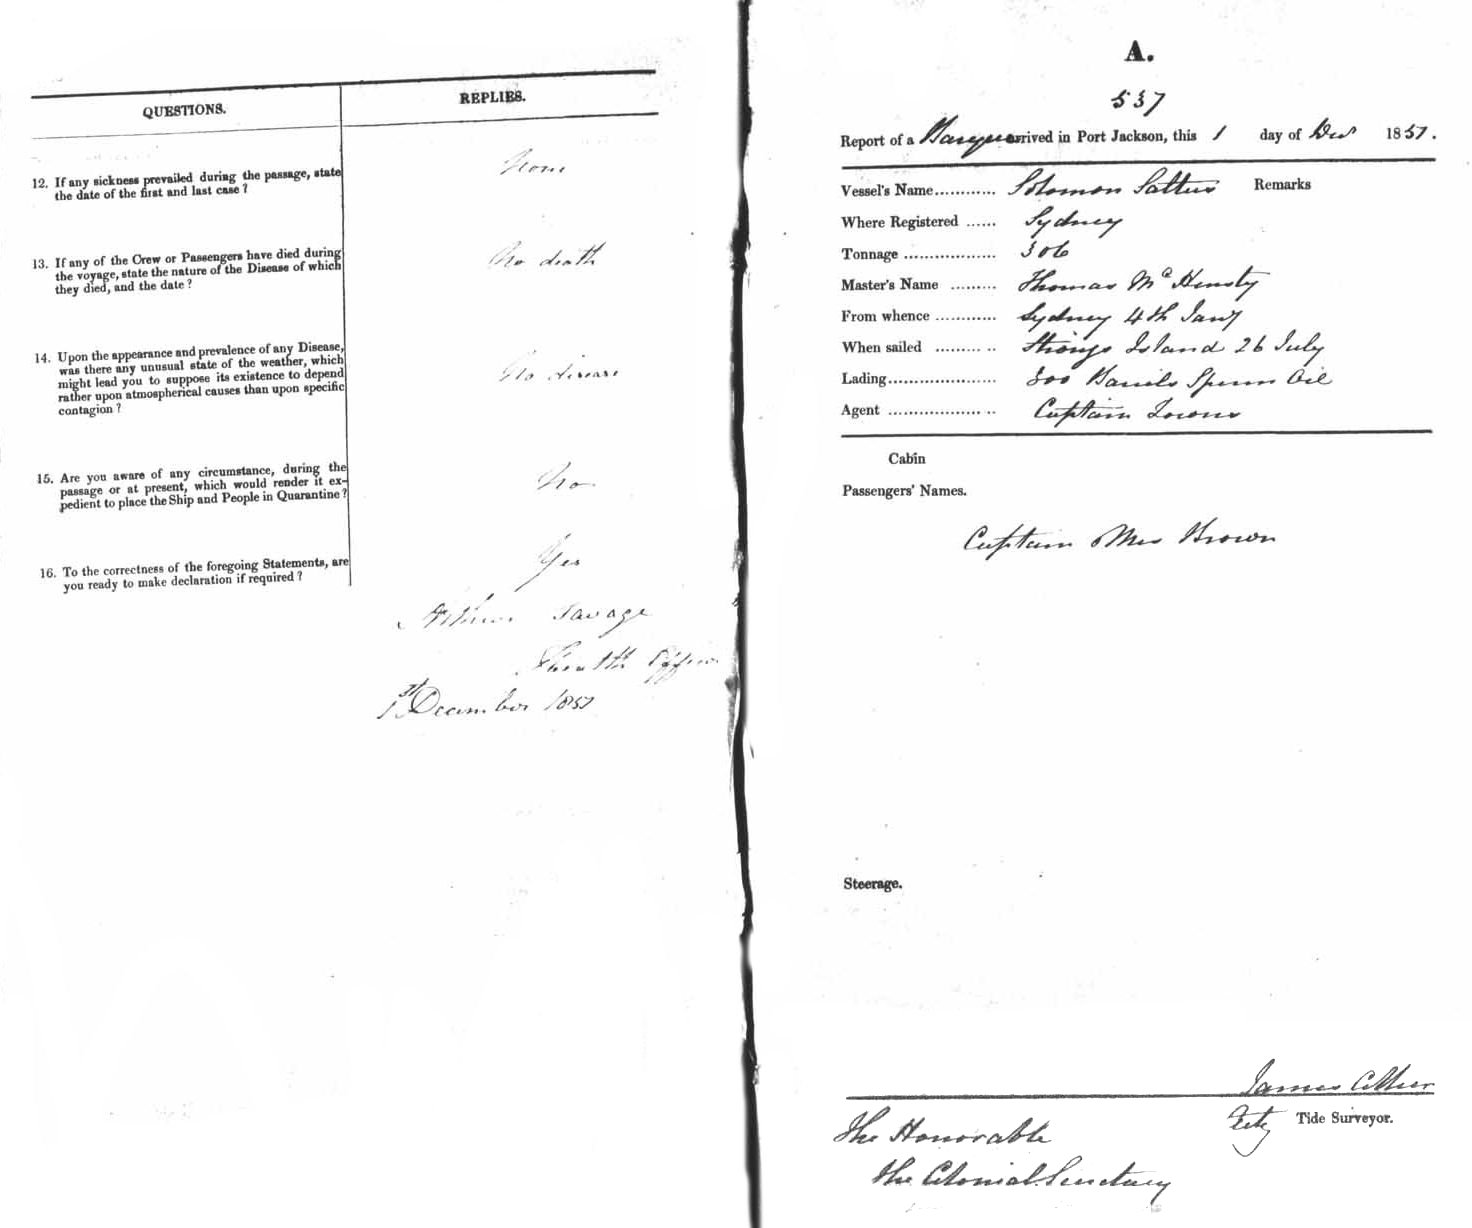 QUESTIONS.
REPLIES.
12. If any sickness prevailed during the passage, state
the date of the first and last case?
None
13. If any of the Crew or Passengers have died during
the voyage, state the nature of the Disease of which
they died, and the date?
No death
14. Upon the appearance and prevalence of any Disease,
was there any unusual state of the weather, which
might lead you to suppose its existence to depend
rather upon atmospherical causes than upon specific
contagion?
No disease
15. Are you aware of any circumstance, during the
passage or at present, which would render it ex-
pedient to place the Ship and People in Quarantine?
No
16. To the correctness of the foregoing Statements, are
you ready to make declaration if required?
Yes
Arthur Savage
Health Officer
1st December 1857
A.
537
Report of a Barque arrived in Port Jackson, this 1 day of Decr 1857.
Vessel's Name............ Solomon Saltus Remarks
Where Registered ...... Sydney
Tonnage .................. 306
Master's Name ......... Thomas
From whence ............ Sydney 4th Jany
When sailed ......... .. Strongs Island 26 July
Lading..................... 300 Barrels Sperm Oil
Agent .................. .. Captain Towns
Cabin
Passengers' Names.
Captain & Mrs Brown
Steerage.
James
Tide Surveyor.
The Honorable
The Colonial Secretary